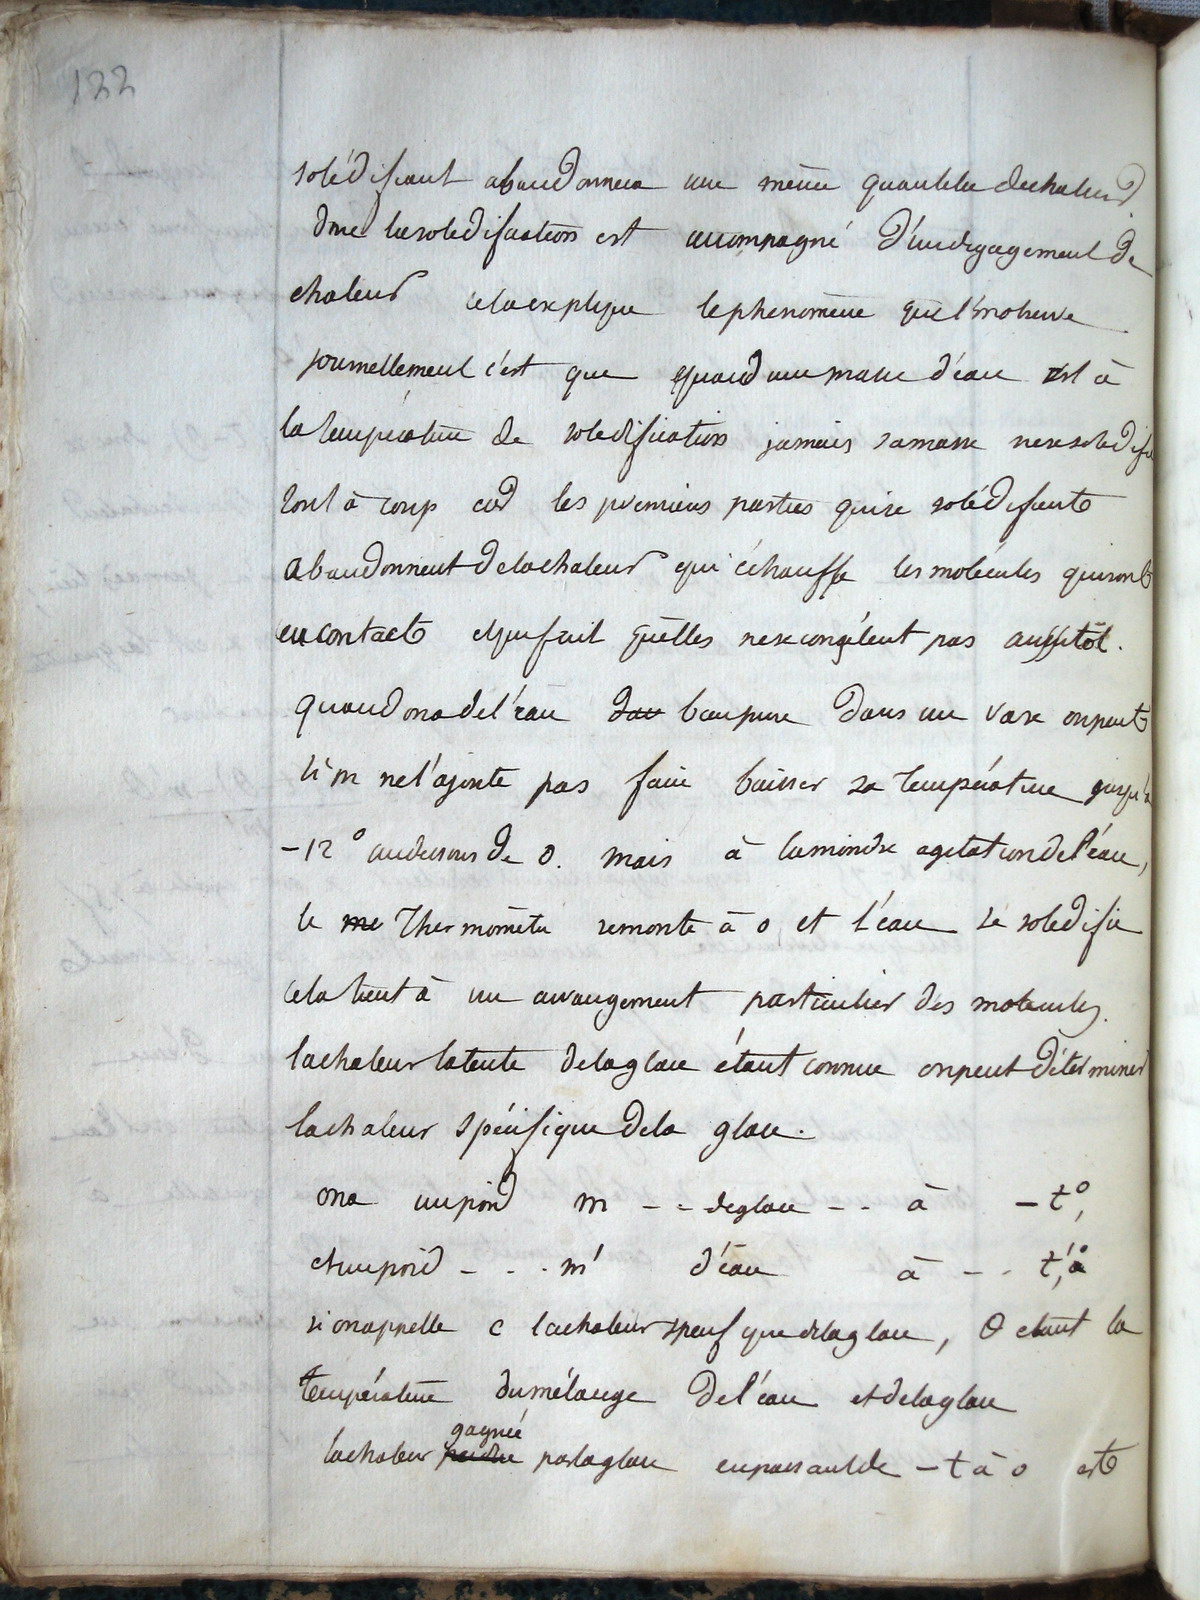 122
solédifiant abandonnera une même quantitée de chaleur
donc la soledification est accompagné d'un dégagement de
chaleur cela explique le phenomène que l'on observe
journellement c'est que quand une masse d'eau est à
la température de soledification jamais sa masse ne se soledifie
tout à coup car les premieres parties qui se solédifient
abandonnent de la chaleur qui échauffe les molécules qui sont
en contact et qui fait qu'elles ne se congèlent pas aussitôt.
quand on a de l'eau dans bien pure dans un vase on peut
si on ne l'agite pas faire baisser sa température jusqu'à
-12° au dessous de 0. mais à la moindre agitation de l'eau,
le me Thermomètre remonte à 0 et l'eau se soledifie
cela tient à un arrangement particulier des molecules.
la chaleur latente de la glace étant connue on peut déterminer
la chaleur spécifique de la glace.
on a un poid m - - de glace - - à -t°,
et un poid - - - m' d'eau à - - t'°
si on appelle c la chaleur specifique de la glace, θ etant la
température du mélange de l'eau et de la glace
gagnée
la chaleur perdue par la glace en passant de -t à 0 est